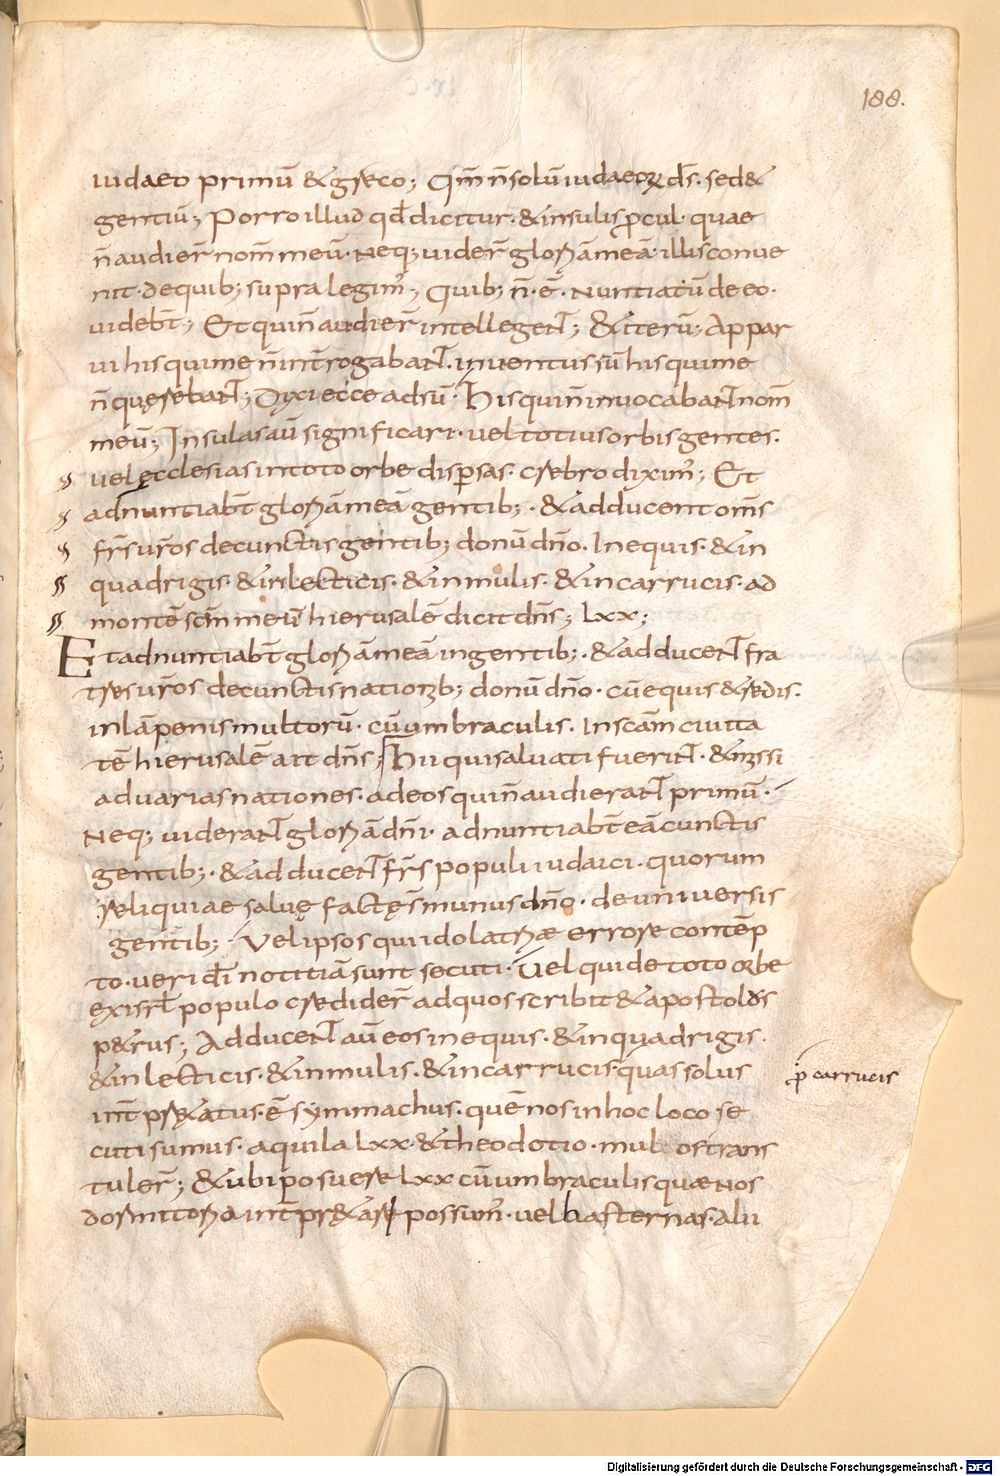 188.
iudaeo primū & greco; Qm̄ n̄ solū iudaeoꝝ d̄s. sed &
gentiū; Porro illud qd̄ dicitur. & insulis ꝓcul. quae
n̄ audier̄ nom̄ meū. Neq; uider̄ gloriā meā. illis conue
nit. de quib; supra legim̄; Quib; n̄. ē. nuntiatū de eo.
uideb̄t; Et qui n̄ audier̄ intellegent; & iterū; Appar
ui his qui me n̄ int̄rogabant. inuentus sū his qui me
n̄ quęrebant; Dixi ecce adsū. His qui n̄ inuocabant nom̄
meū; Insulas aū significari. uel totius orbis gentes.
uel ęcclesias in toto orbe disꝑsas. crebro dixim̄; Et
adnuntiab̄t gloriā meā gentib;. & adducent om̄s
fr̄s ur̄os de cunctis gentib; donū dn̄o. In equis. & in
quadrigis. & in lecticis. & in mulis. & in carrucis. ad
montē sc̄m meū hierusalē dicit dn̄s; Lxx;
Et adnuntiab̄t gloriā meā in gentib;. & adducent fra
tres ur̄os de cunctis nationib; donū dn̄o. cū equis & redis.
in lāpenis multorū. cū umbraculis. In sc̄am ciuita
tē hierusalē ait dn̄s; Hii qui saluati fuerint. & missi
ad uarias nationes. ad eos qui n̄ audierant primū.
Neq; uiderant gloriā dn̄i. adnuntiab̄t eā cunctis
gentib;. & adducent fr̄s populi iudaici. quorum
reliquiae saluę factę s̄ munus dn̄o. de uniuersis
gentib;. Vel ipsos qui idolatriæ errore contēp
to. ueri d̄i notitiā sunt secuti. Vel qui de toto orbe
ex isrl̄ populo credider̄ ad quos scribit & apostolos
p&rus; Adducent aū eos in equis. & in quadrigis.
& in lecticis. & in mulis. & in carrucis quas solus
int̄pr&atus. ē symmachus. quē nos in hoc loco se
cuti sumus. aquila Lxx. & theodotio. multos trans
tuler̄; & ubi posuere Lxx cū umbraculis quæ nos
dormitoria int̄pr&ari possum̄. uel basternas. alii
p̄ carrucis
Digitalisierung gefördert durch die Deutsche Forschungsgemeinschaft - DFG